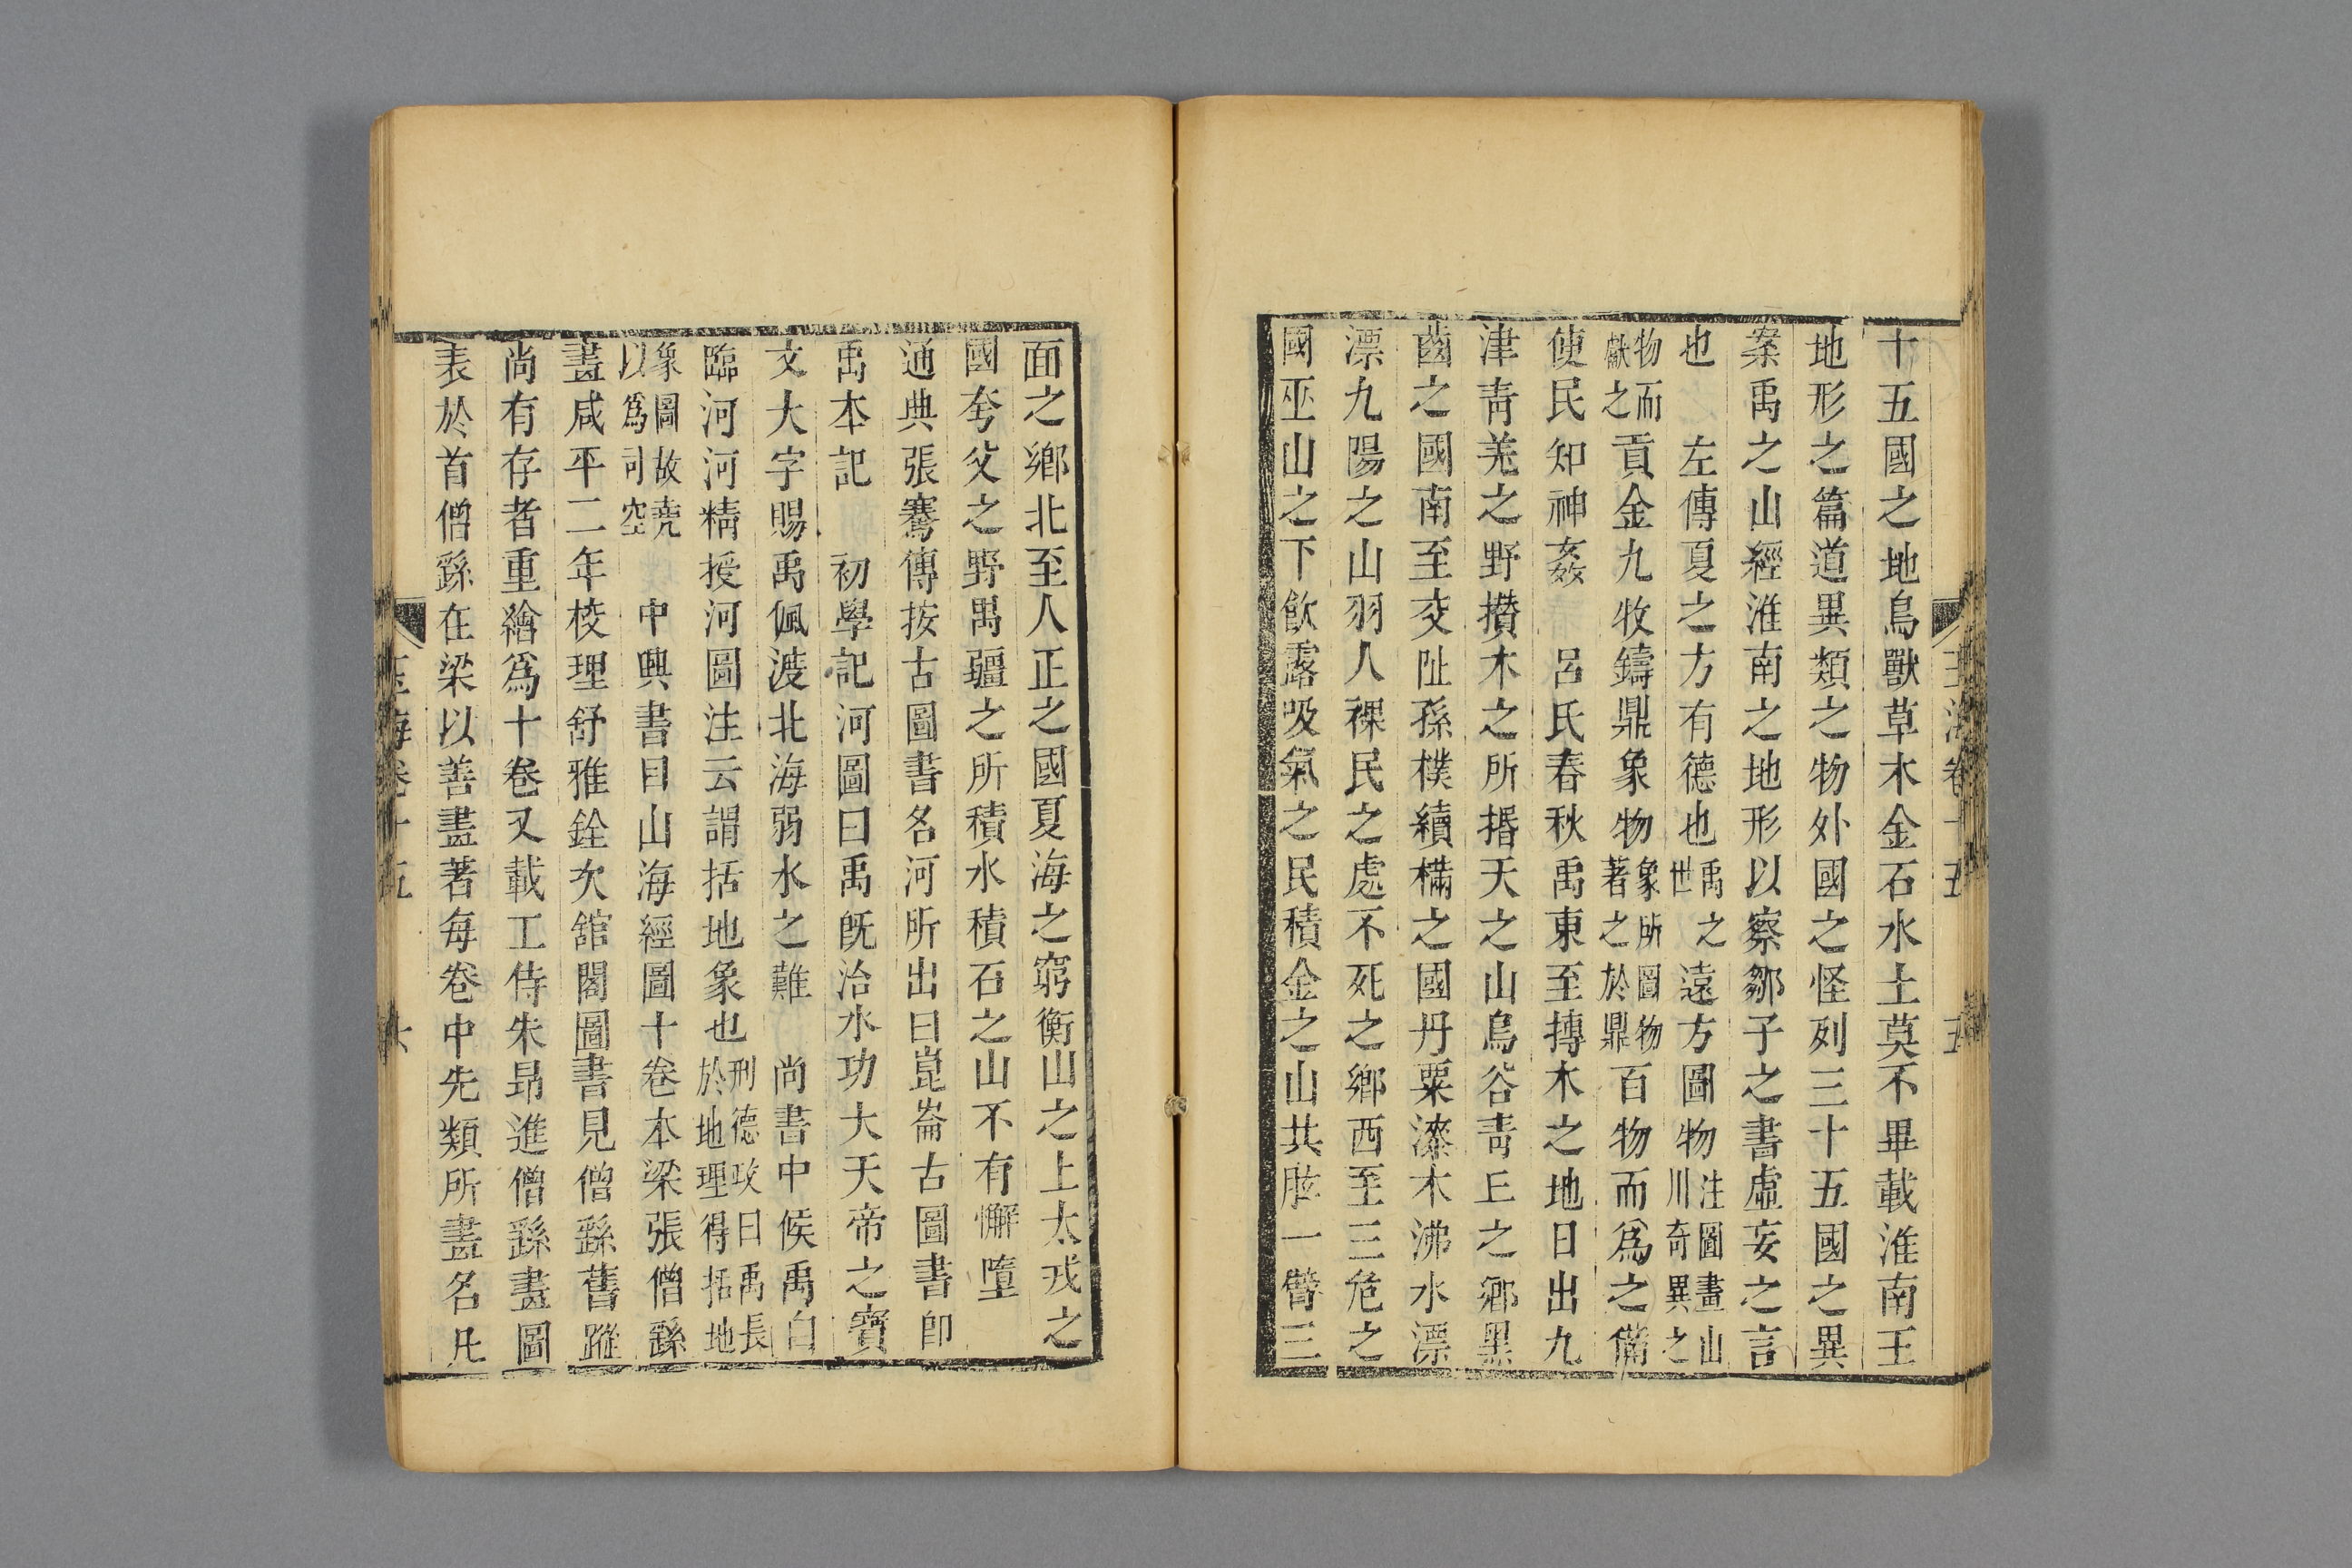 十五國之地鳥獸草木金石水土莫不畢載淮南王
地形之篇道異類之物外國之怪列三十五國之異
案禹之山經淮南之地形以察鄒子之書虛妄之言
也　左傳夏之方有德也禹之世遠方圖物注圖畫山川奇異之
物而獻之貢金九牧鑄鼎象物象所圖物著之於鼎百物而爲之備
使民知神姦　呂氏春秋禹東至摶木之地日出九
津靑羌之野攢木之所㨉天之山鳥谷靑丘之鄉黑
齒之國南至交阯孫樸續樠之國丹粟漆木沸水漂
漂九陽之山羽人裸民之處不死之鄉西至三危之
國巫山之下飮露吸氣之民積金之山共肱一臂三
面之鄉北至人正之國夏海之窮衡山之上太戎之
國夸父之野禺疆之所積水積石之山不有懈墮
通典張騫傳按古圖書名河所出曰崑崙古圖書卽
禹本記　初學記河圖曰禹旣治水功大天帝之寶
文大字賜禹佩渡北海弱水之難　尚書中候禹白
臨河河精授河圖注云謂括地象也刑德攷曰禹長於地理得括地
象圖故堯以爲司空　中興書目山海經圖十卷本梁張僧繇
畫咸平二年校理舒雅銓次舘閣圖書見僧繇舊蹤
尚有存者重繪爲十卷又載工侍朱昻進僧繇畫圖
表於首僧繇在梁以善畫著每卷中先類所畫名凡
玉海卷十五